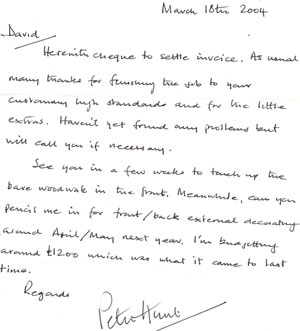 March 18th 2004
David
Herewith cheque to settle invoice. As usual
many thanks for finishing the job to your
customary high standards and for the little
extras. Haven't yet found any problems but
will call you if necessary.
See you in a few weeks to touch up the
bare woodwork in the front. Meanwhile, can you
pencil me in for front/back external decorating
around April/May next year. I'm budgetting
around £1200 which was what it came to last
time.
Regards
Peter Hunt